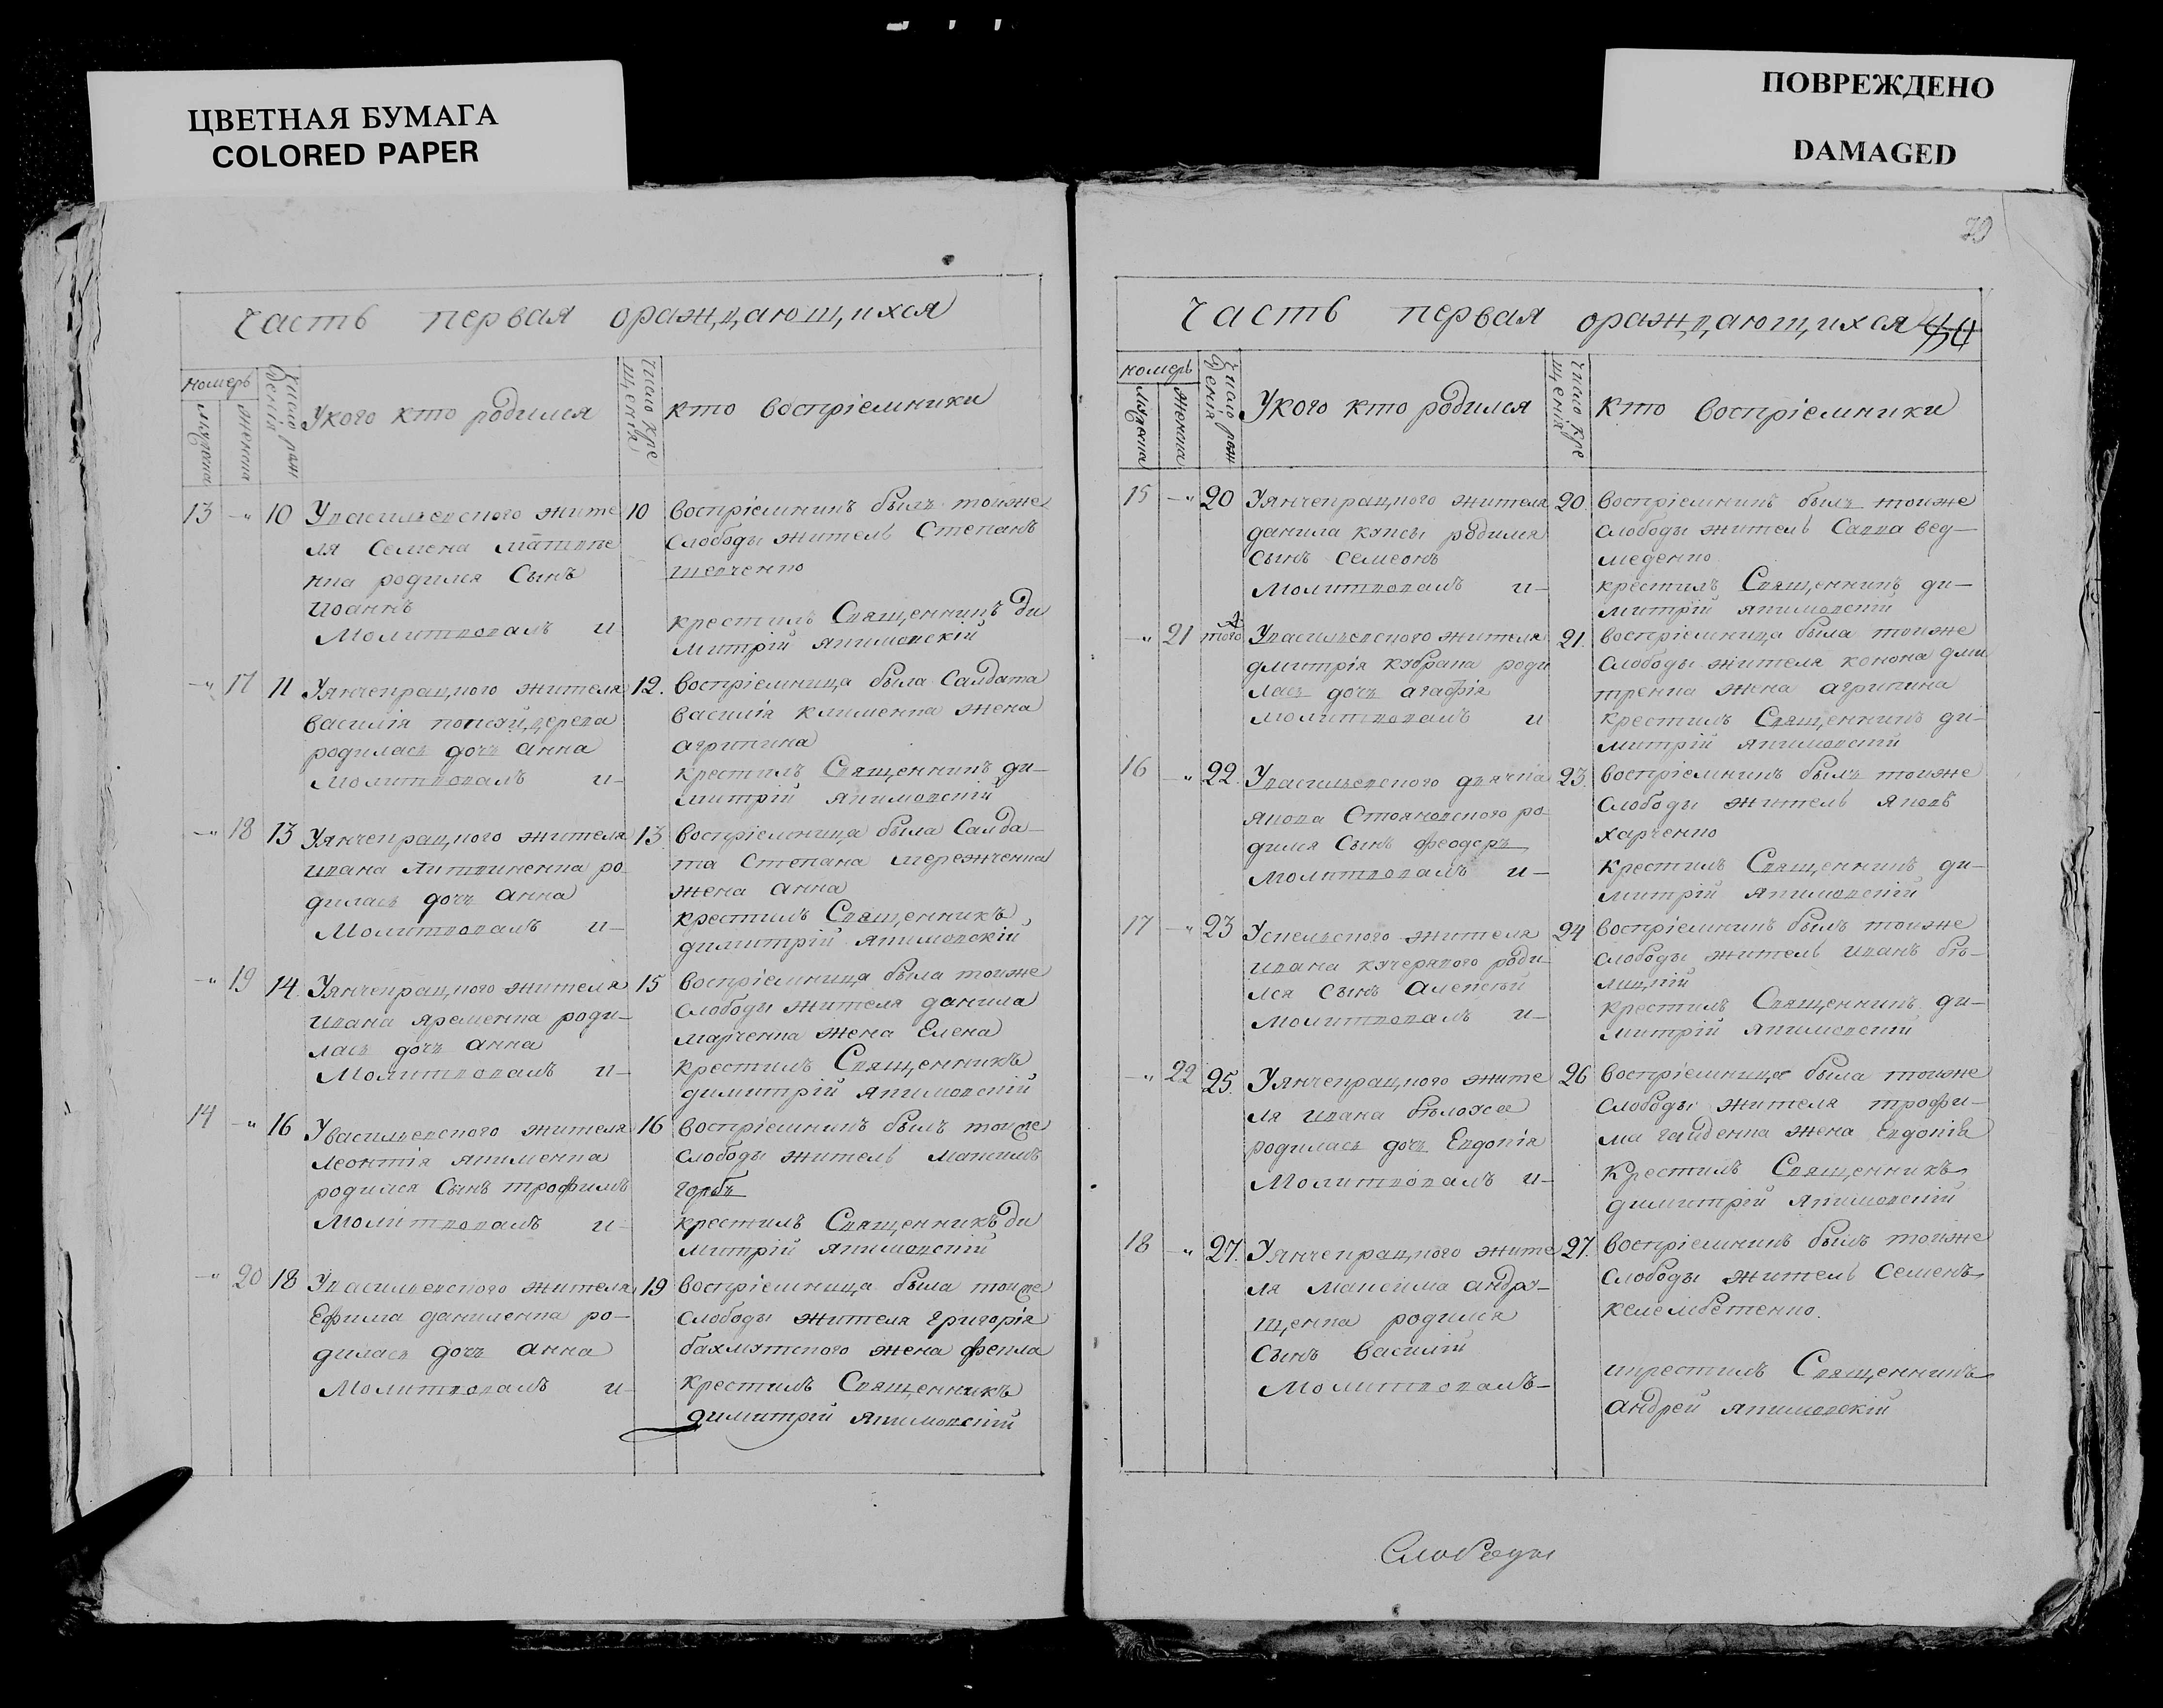 ЦВЕТНАЯ БУМАГА
COLORED PAPER
ПОВРЕЖДЕНО
DAMAGED
Часть первая ораждающихся
номеръ
мужеска
женска
число раж
денія
Укого кто родился
число кре
щенія
кто воспріемники
13 -" 10 Увасильевского жите
ля Семена матвие
нка родился Сынъ
иоаннъ
Молитвовалъ и
10 воспріемникъ былъ тоиже
слободы житель Степанъ
шевченко
крестилъ Священникъ ди
митрій якимовскій
-" 17 11 Уянчекрацкого жителя
василія
родилась дочь анна
молитвовалъ и-
12. воспріемница была Салдата
василія клименка жена
агрипина
крестилъ Священникъ ди-
митрій якимовскій
-" 18 13 Уянчекрацкого жителя
ивана литвиненка ро
дилась дочь анна
Молитвовалъ и-
13. воспріемница была Салда-
та Степана мережченка
жена анна
крестилъ Священникъ
димитрій якимовскій
-" 19 14. Уянчекрацкого жителя
ивана яременка роди-
лась дочь анна
Молитвовалъ и-
15 воспріемница была тоиже
слободы жителя данила
марченка жена Елена
крестилъ Священникъ
димитрій якимовскій
14 -" 16 Увасильевского жителя
леонтія якименка
родился Сынъ трофимъ
Молитвовалъ и-
16 воспріемникъ былъ тоиже
слободы житель максимъ
горбъ
крестилъ Священникъ ди
митрій якимовскій
-" 20 18 Увасильевского жителя
Ефима даниленка ро-
дилась дочь анна
Молитвовалъ и-
19 воспріемница была тоиже
слободы жителя григорія
бахмутского жена фекла
крестилъ Священникъ
димитрій якимовскій
Часть первая ораждающихся
номеръ
мужеска
женска
число раж
денія
Укого кто родился
число кре
щенія
кто воспріемники
15 -" 20 Уянчекрацкого жителя
данила куксы родился
сынъ семеонъ
Молитвовалъ и-
20. воспріемникъ былъ тоиже
слободы житель Савва вед-
меденко
крестилъ Священникъ ди-
митрій якимовскій
-" 21 того Увасильевского жителя
дмитрія кубрака роди
лась дочь агафія
молитвовалъ и
21. воспріемница была тоиже
слободы жителя конона дми
тренка жена агрипина
крестилъ Священникъ ди-
митрій якимовскій
16 -" 22. Увасильевского дьячка
якова Стояновского ро-
дился Сынъ феодоръ
молитвовалъ и-
23. воспріемникъ былъ тоиже
слободы житель яковъ
харченко
крестилъ Священникъ ди-
митрій якимовскій
17 -" 23 жителя
ивана кучерявого роди-
лся сынъ алексѣй
молитвовалъ и-
24 воспріемникъ былъ тоиже
слободы житель иванъ бѣ-
лицкій
крестилъ Священникъ ди-
митрій якимовскій
-" 22 25. Уянчекрацкого жите
ля ивана бѣлоуса
родилась дочь Евдокія
Молитвовалъ и-
26 воспріемница была тоиже
слободы жителя трофи-
ма гайденка жена Евдокія
крестилъ Священникъ
димитрій якимовскій
18 -" 27. Уянчекрацкого жите
ля максима андру-
щенка родился
сынъ василій
Молитвовалъ-
27. воспріемникъ былъ тоиже
слободы житель Семенъ
келембетенко.
икрестилъ Священникъ
андрей якимовскій
Слободы